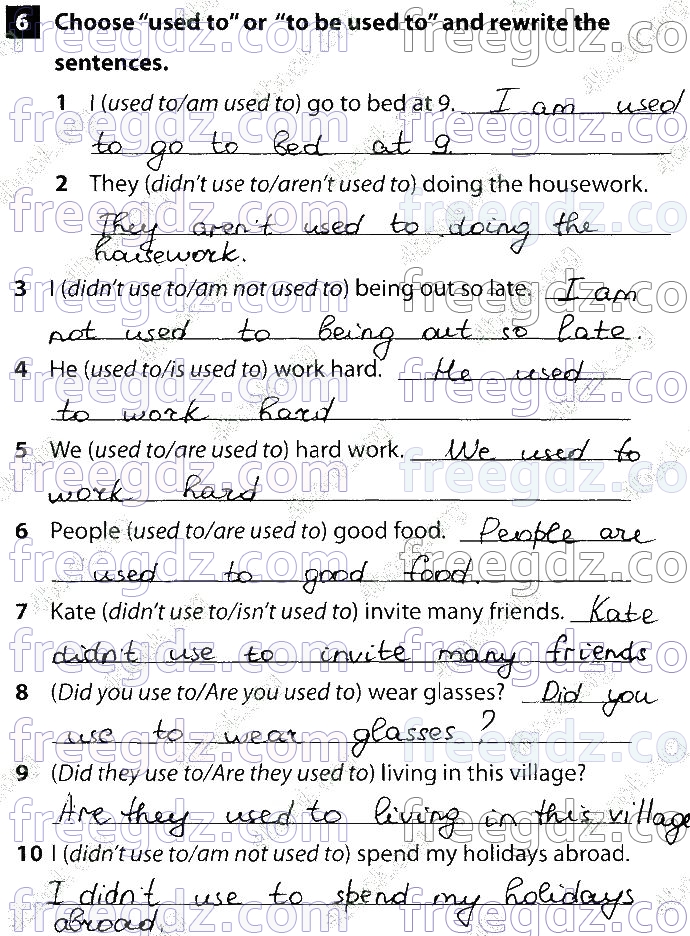 6 Choose “used to” or “to be used to” and rewrite the
sentences.
1 I (used to/am used to) go to bed at 9. I am used
to go to bed at 9.
2 They (didn't use to/aren't used to) doing the housework.
They aren't used to doing the
housework.
3 I (didn't use to/am not used to) being out so late. I am
not used to being out so late.
4 He (used to/is used to) work hard. He used
to work hard
5 We (used to/are used to) hard work. We used to
work hard
6 People (used to/are used to) good food. People are
used to good food.
7 Kate (didn't use to/isn't used to) invite many friends. Kate
didn't use to invite many friends
8 (Did you use to/Are you used to) wear glasses? Did you
use to wear glasses?
9 (Did they use to/Are they used to) living in this village?
Are they used to living in this village
10 I (didn't use to/am not used to) spend my holidays abroad.
I didn't use to spend my holidays
abroad.
freegdz.com